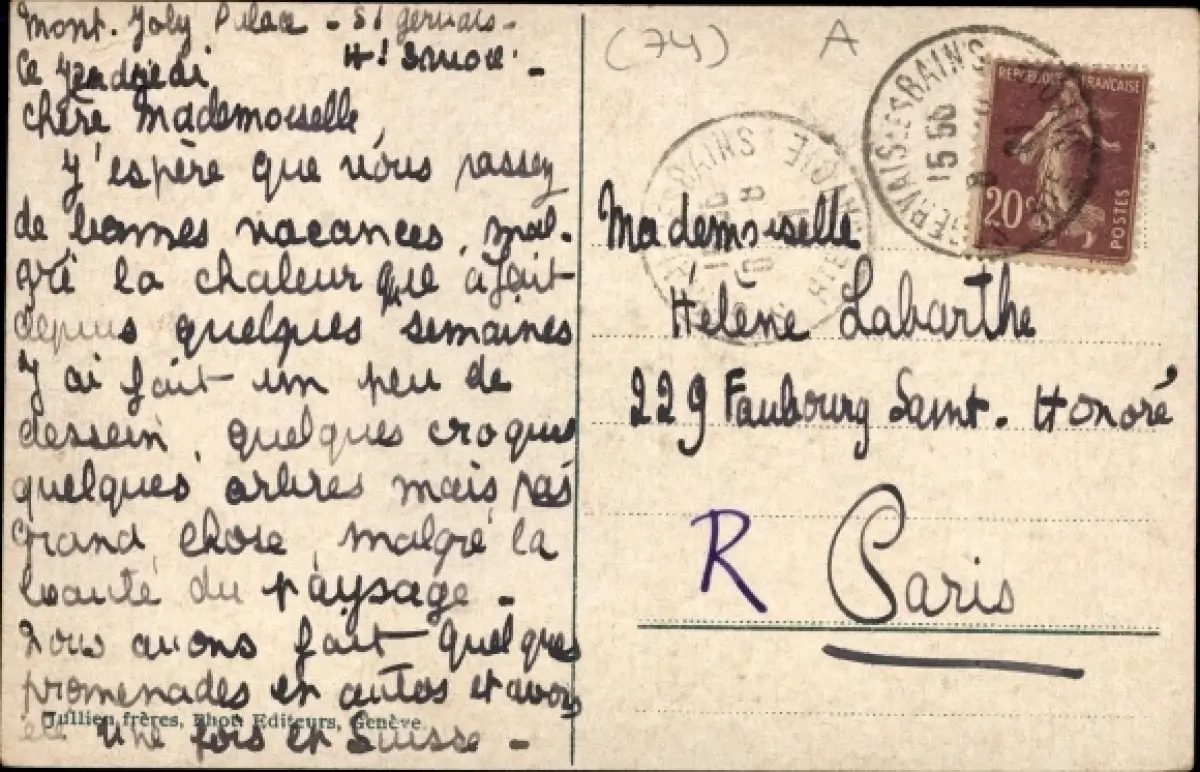 Mont. Joly Palace - St gervais -
Hte Savoie. -
Ce Vendredi
chère Mademoiselle,
J'espère que vous passez
de bonnes vacances, mal-
gré la chaleur que a fait
depuis quelques semaines
J'ai fait un peu de
dessein, quelques croquis
quelques arbres mais pas
grand chose, malgré la
beauté du paysage -
Nous avons fait quelques
promenades en autos et avons
été une fois en Suisse -
Jullien frères, Phot. Editeurs, Genève
(74) A
GERVAIS LES BAINS
15 50
REPUBLIQUE FRANÇAISE
20c
POSTES
Mademoiselle
Hélène Labarthe
229 Faubourg Saint-Honoré
R Paris